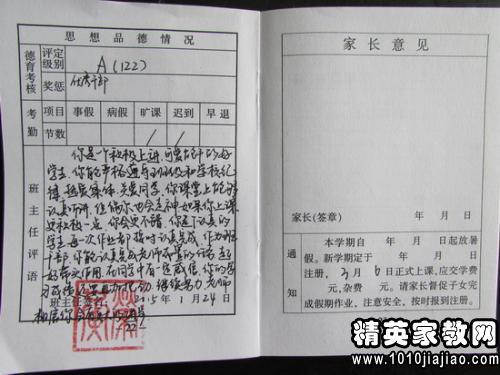 思想品德情况
德育考核
评定级别
A(122)
奖惩
优秀干部
考勤
项目 事假 病假 旷课 迟到 早退
节数 / /
班主任评语
你是一个积极上进,
学生。你能严格遵守班级和学校纪
律,热爱集体,关爱同学,你课堂上能够
认真听讲,但偶尔也会走神,如果你上课
更积极一定会更不错。你是个认真的
学生,每一次作业都按时认真完成,作为班
干部,你能认真完成老师布置的任务,起
好带头作用,在同学中有一定威信,你的学
努力,老师
班主任签章
2015年1月24日
相信你
家长意见
家长(签章) 年 月 日
通知
本学期自 年 月 日起放暑
假。新学期定于 年 月 日
注册,3月6日正式上课,应交学费
元,杂费 元。请家长督促子女完
成假期作业,注意安全,按时报到注册。
精英家教网
www.1010jiajiao.com